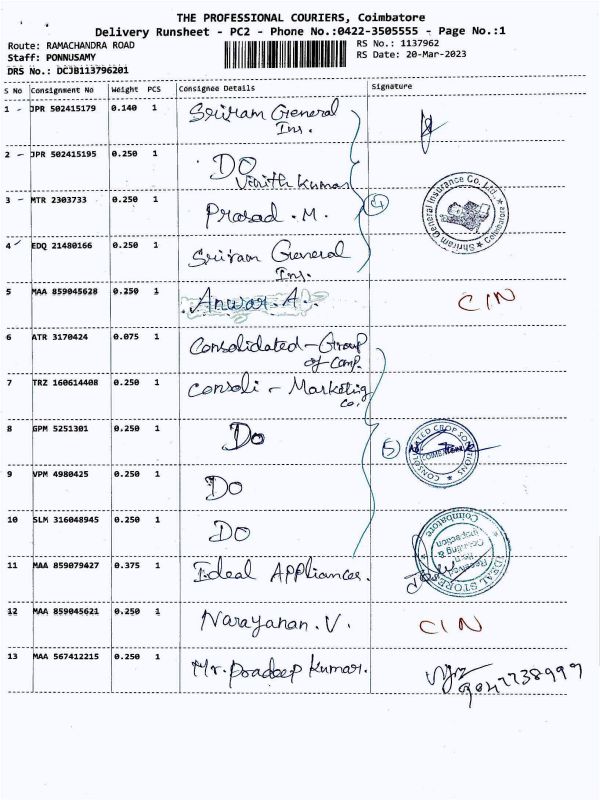 THE PROFESSIONAL COURIERS, Coimbatore
Delivery Runsheet - PC2 - Phone No.:0422-3505555 - Page No.:1
Route: RAMACHANDRA ROAD
RS No.: 1137962
Staff: PONNUSAMY
RS Date: 20-Mar-2023
DRS No.: DCJB113796201
S No Consignment No Weight PCS Consignee Details Signature
1 - JPR 502415179 0.140 1 Sriram General
Ins.
2 - JPR 502415195 0.250 1 DO
Vinith Kumar
3 - MTR 2303733 0.250 1 Prasad . M.
4
Shriram General Insurance Co. Ltd. Coimbatore
4 EDQ 21480166 0.250 1 Sriram General
Ins.
5 MAA 859045628 0.250 1 Anwar. A. CIN
6 ATR 3170424 0.075 1 Consolidated - Group
of Comp.
7 TRZ 160614408 0.250 1 Consoli - Marketing
Co.
8 GPM 5251301 0.250 1 Do
5
CONSOLIDATED CROP SOLUTIONS
COIMBATORE
9 VPM 4980425 0.250 1 DO
10 SLM 316048945 0.250 1 DO
IDEAL STORES Coimbatore
Received
Inspection
11 MAA 859079427 0.375 1 Ideal APPliances.
12 MAA 859045621 0.250 1 Narayanan. V. CIN
13 MAA 567412215 0.250 1 Mr. Pradeep Kumar.